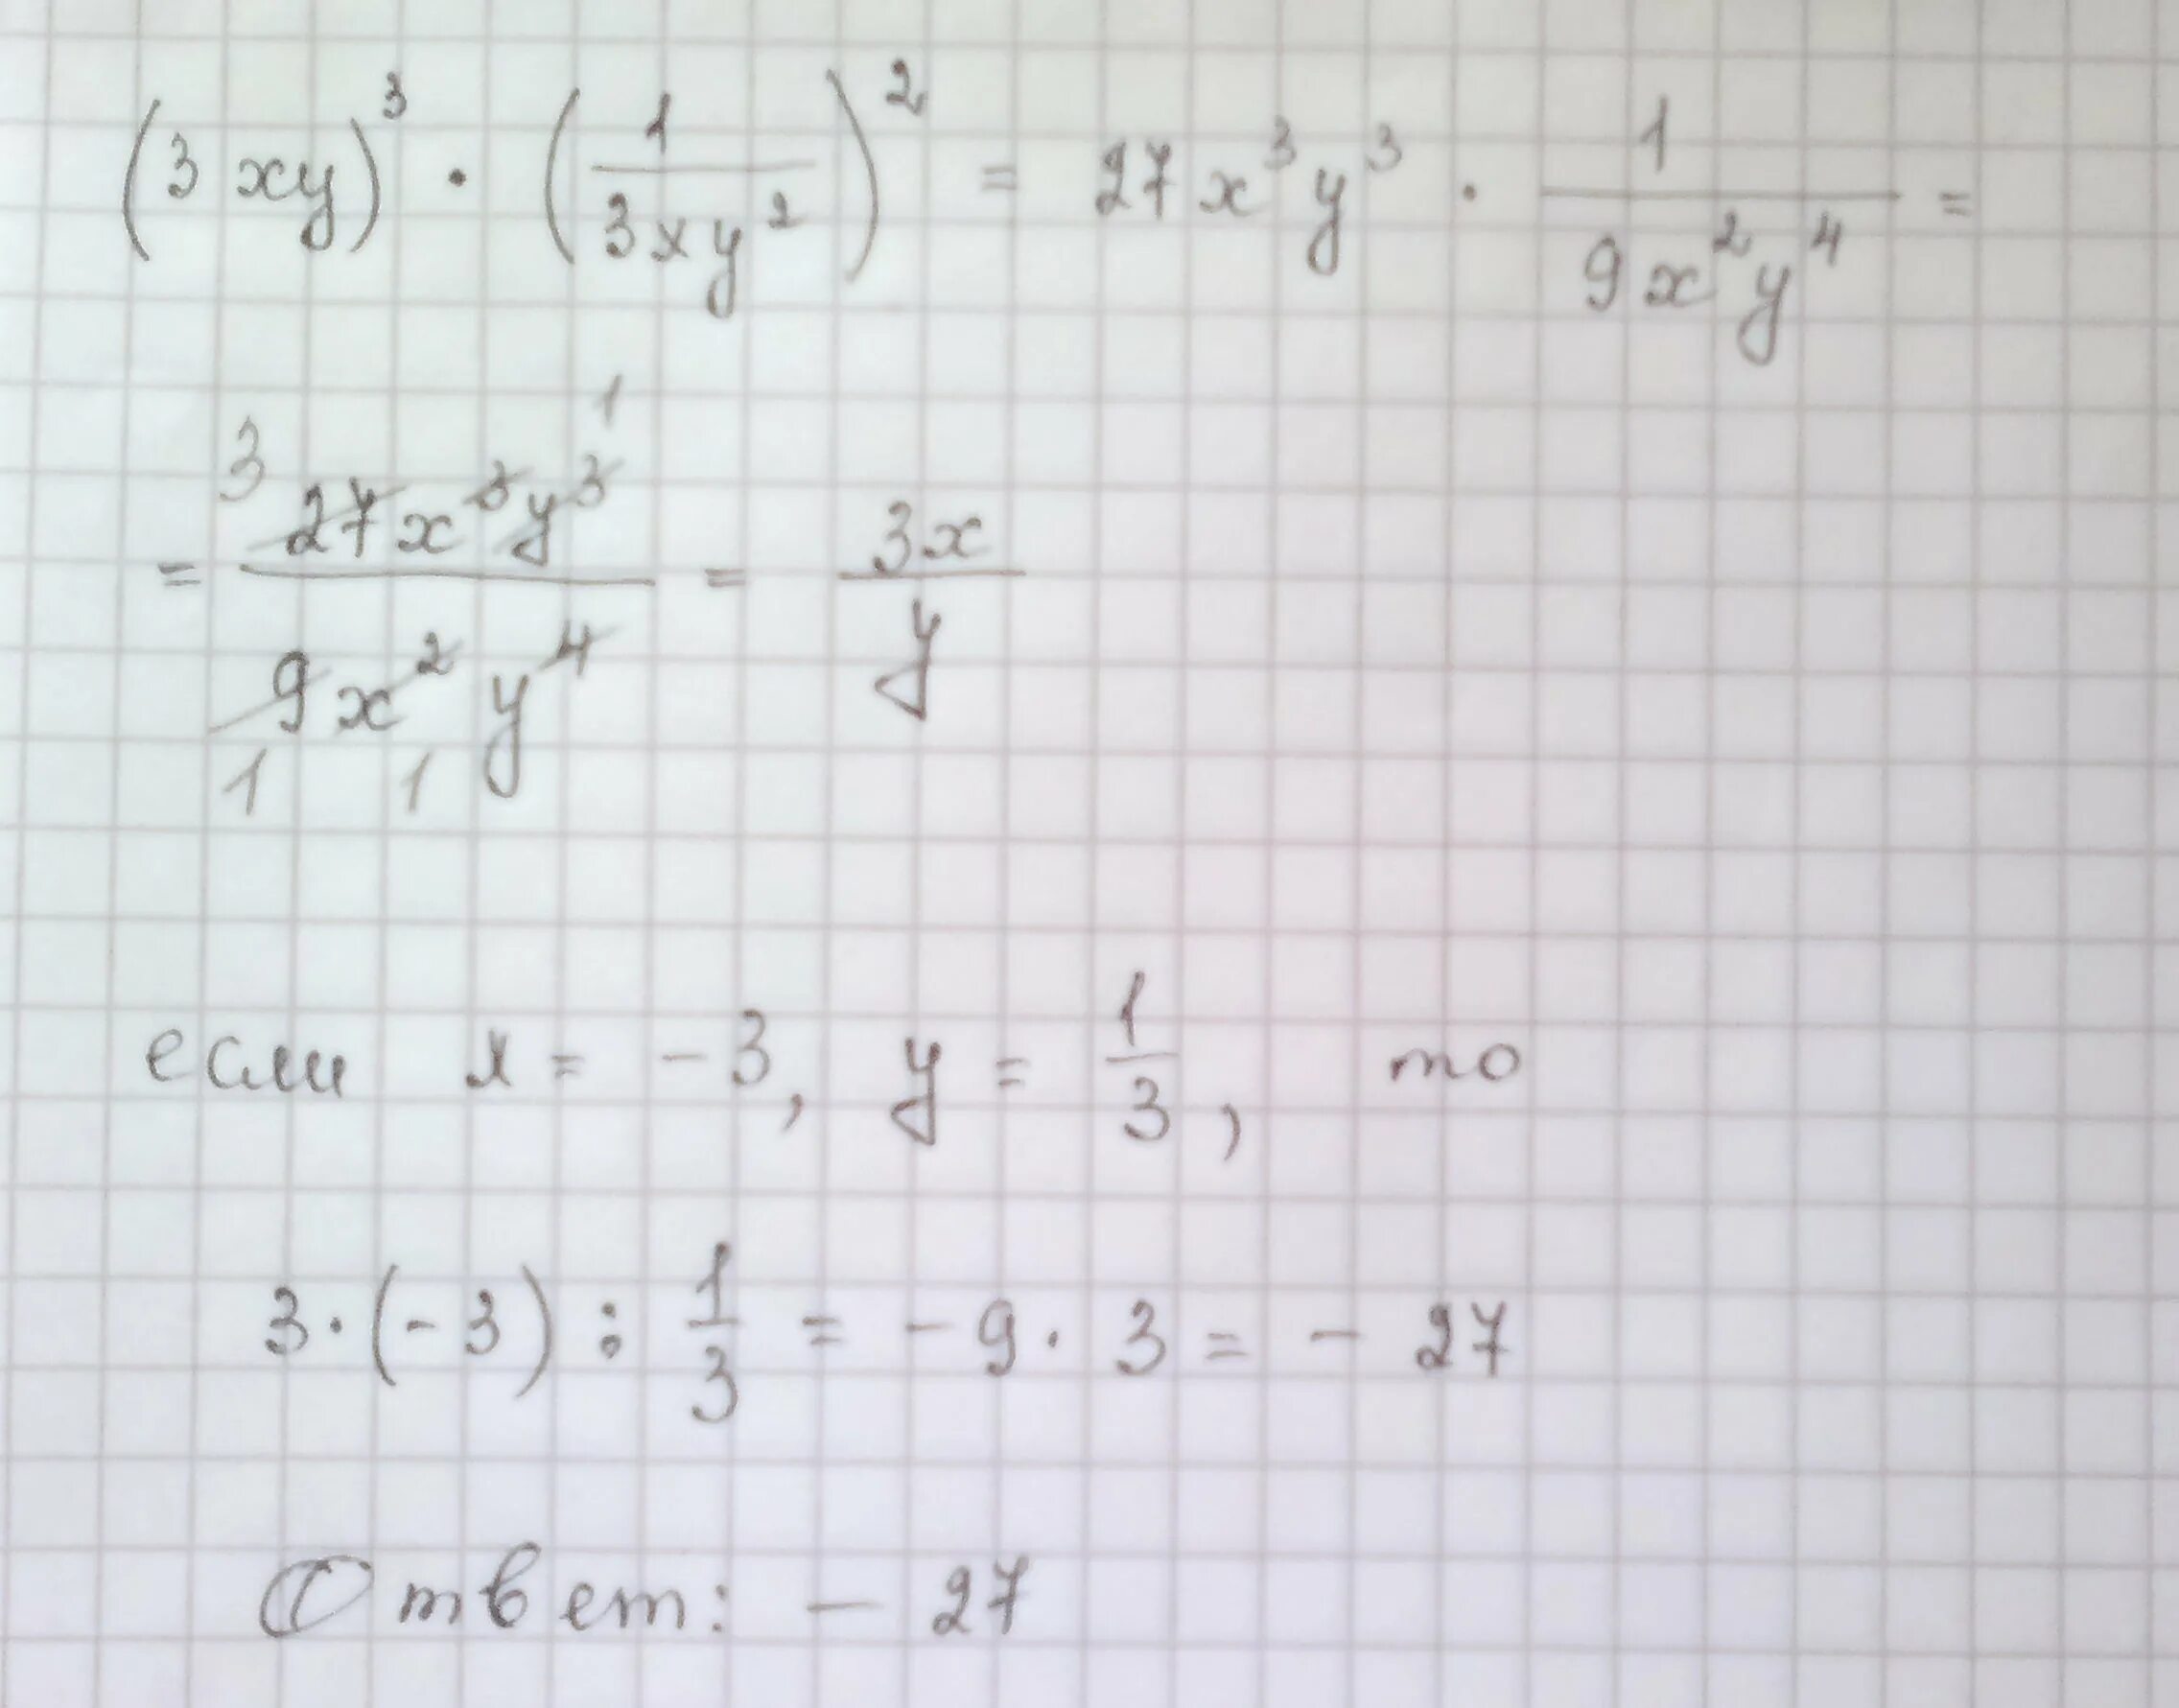 (3xy)³ · (1/(3xy²))² = 27x³y³ · 1/(9x²y⁴) =
= ³27x³y³ ¹ / ₁9x²₁y⁴ = 3x/y
если x = -3, y = 1/3, то
3·(-3) : 1/3 = -9 · 3 = - 27
Ответ: - 27